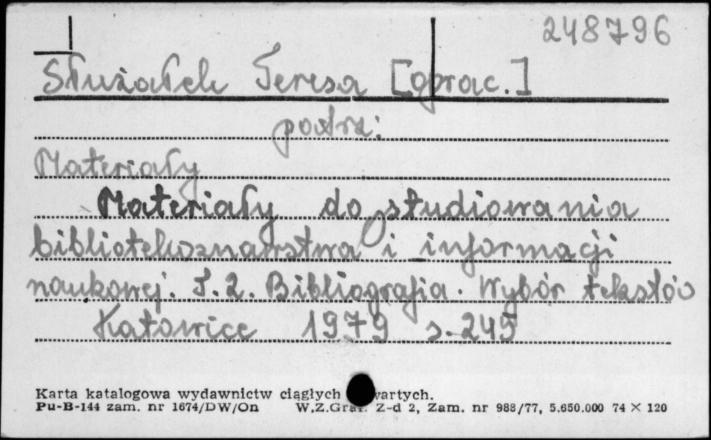 248796
Służałek Teresa [oprac.]
patrz:
Materiały
Materiały do studiowania
bibliotekoznawstwa i informacji
naukowej. T. 2. Bibliografia. Wybór tekstów
Katowice 1979 s. 245
Karta katalogowa wydawnictw ciągłych wartych.
Pu-B-144 zam. nr 1674/DW/On W.Z.Graf. Z-d 2, Zam. nr 988/77, 5.650.000 74 × 120